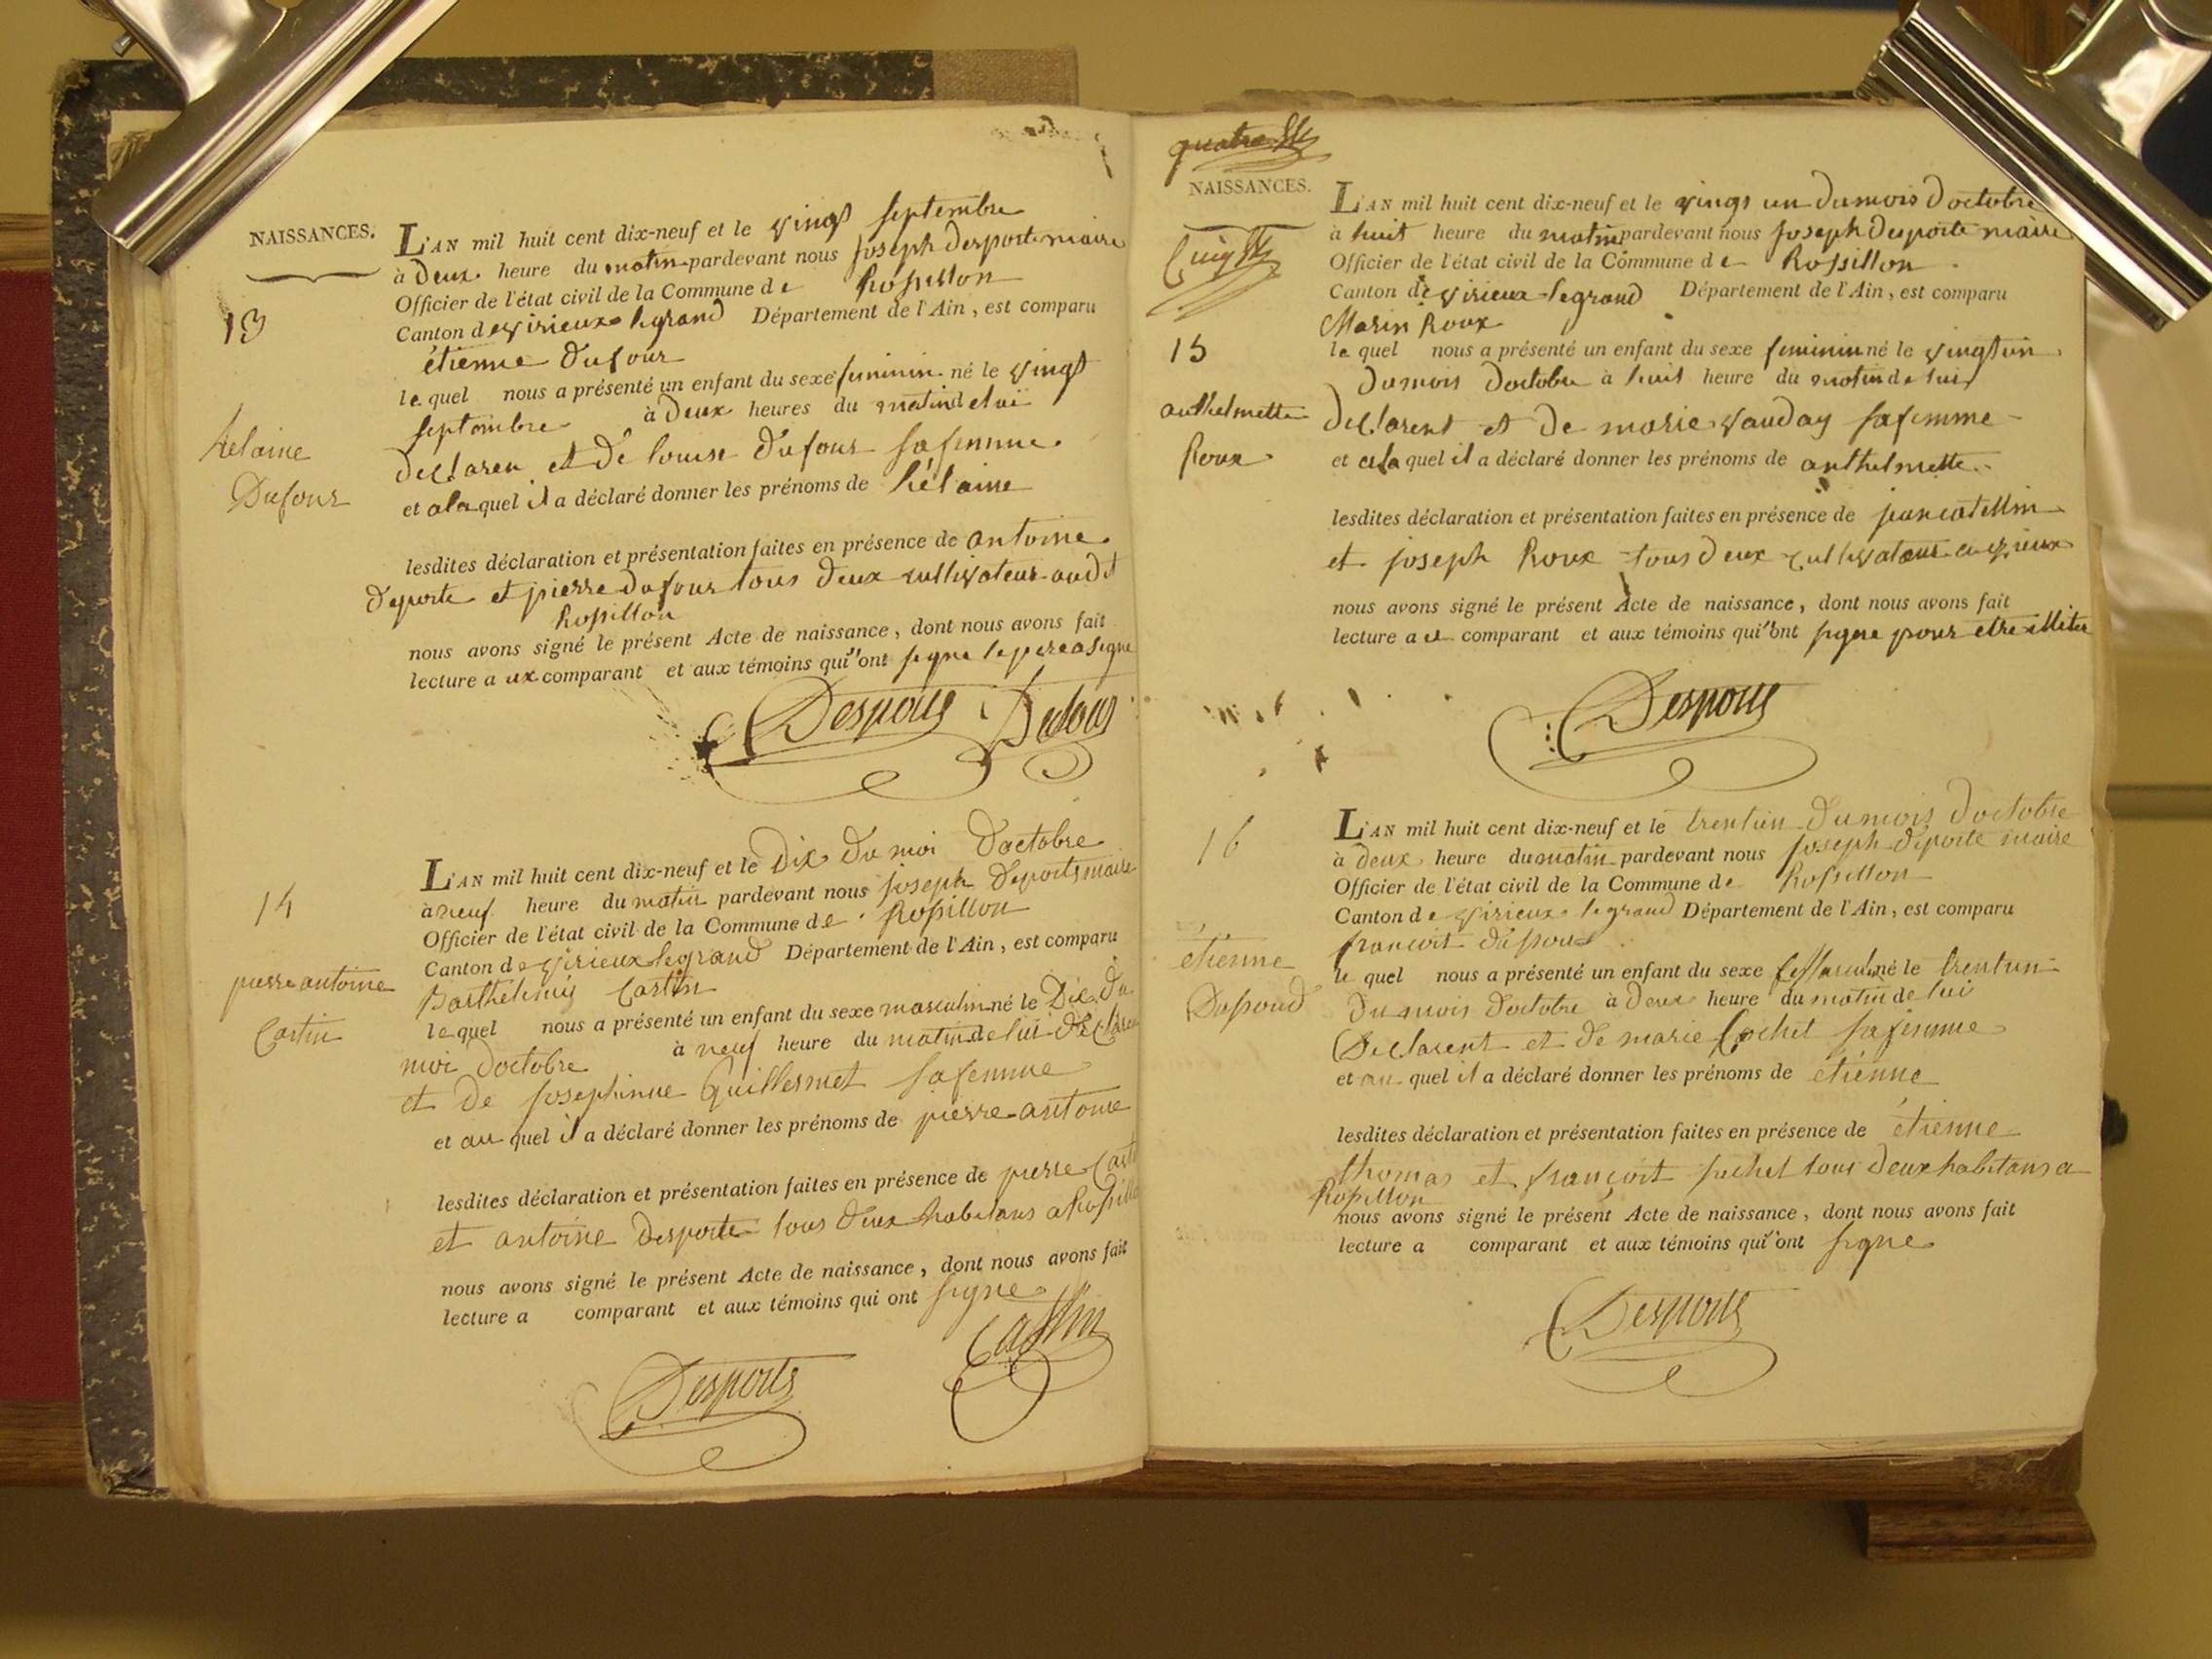 NAISSANCES.
13
helaine
Dufour
L'AN mil huit cent dix-neuf et le vingt septembre
à Deux heure du matin pardevant nous joseph desporte maire
Officier de l'état civil de la Commune de Rossillon
Canton de virieux legrand Département de l'Ain, est comparu
étienne Dufour
lequel nous a présenté un enfant du sexe feminin né le vingt
septembre à Deux heures du matin de lui
declaren et de louise Dufour sa femme
et a laquel il a déclaré donner les prénoms de hélaine
lesdites déclaration et présentation faites en présence de antoine
deporte et pierre dufour tous deux cultivateur audit
Rossillon
nous avons signé le présent Acte de naissance, dont nous avons fait
lecture a ux comparant et aux témoins qui ont signe le pere a signe
Desporte Dufour
14
pierre antoine
Castin
L'AN mil huit cent dix-neuf et le Dix du moi Doctobre
à neuf heure du matin pardevant nous joseph deporte maire
Officier de l'état civil de la Commune de Rossillon
Canton de virieux legrand Département de l'Ain, est comparu
Barthelemy Castin
lequel nous a présenté un enfant du sexe masculin né le Dix du
moi doctobre à neuf heure du matin de lui declaren
et de josephinne Guillermet sa femme
et au quel il a déclaré donner les prénoms de pierre antoine
lesdites déclaration et présentation faites en présence de pierre Casti
et antoine Desporte tous deux habitans a Rossillo
nous avons signé le présent Acte de naissance, dont nous avons fait
lecture a comparant et aux témoins qui ont signe
Castin
Desporte
quatre
NAISSANCES.
15
anthelmette
Roux
L'AN mil huit cent dix-neuf et le vings un du mois doctobre
à huit heure du matin pardevant nous joseph desporte maire
Officier de l'état civil de la Commune de Rossillon
Canton de virieux legrand Département de l'Ain, est comparu
Marin Roux
le quel nous a présenté un enfant du sexe feminin né le vingt un
du mois doctobre à huit heure du matin de lui
declarent et de marie vauday sa femme
et a la quel il a déclaré donner les prénoms de anthelmette
lesdites déclaration et présentation faites en présence de jean catellin
et joseph Roux tous deux cultivateur
nous avons signé le présent Acte de naissance, dont nous avons fait
lecture a comparant et aux témoins qui n'ont signe pour etre illiteré
Desporte
16
étienne
Dupoud
L'AN mil huit cent dix-neuf et le trentun du mois doctobre
à deux heure du matin pardevant nous joseph deporte maire
Officier de l'état civil de la Commune de Rossillon
Canton de virieux legrand Département de l'Ain, est comparu
françoit
le quel nous a présenté un enfant du sexe Masculin né le trentun
du mois doctobre à deux heure du matin de lui
Declarent et de marie Cochet sa femme
et au quel il a déclaré donner les prénoms de étienne
lesdites déclaration et présentation faites en présence de étienne
thomas et françoit tous deux habitans a
Rossillon
nous avons signé le présent Acte de naissance, dont nous avons fait
lecture a comparant et aux témoins qui n'ont signe
Desporte